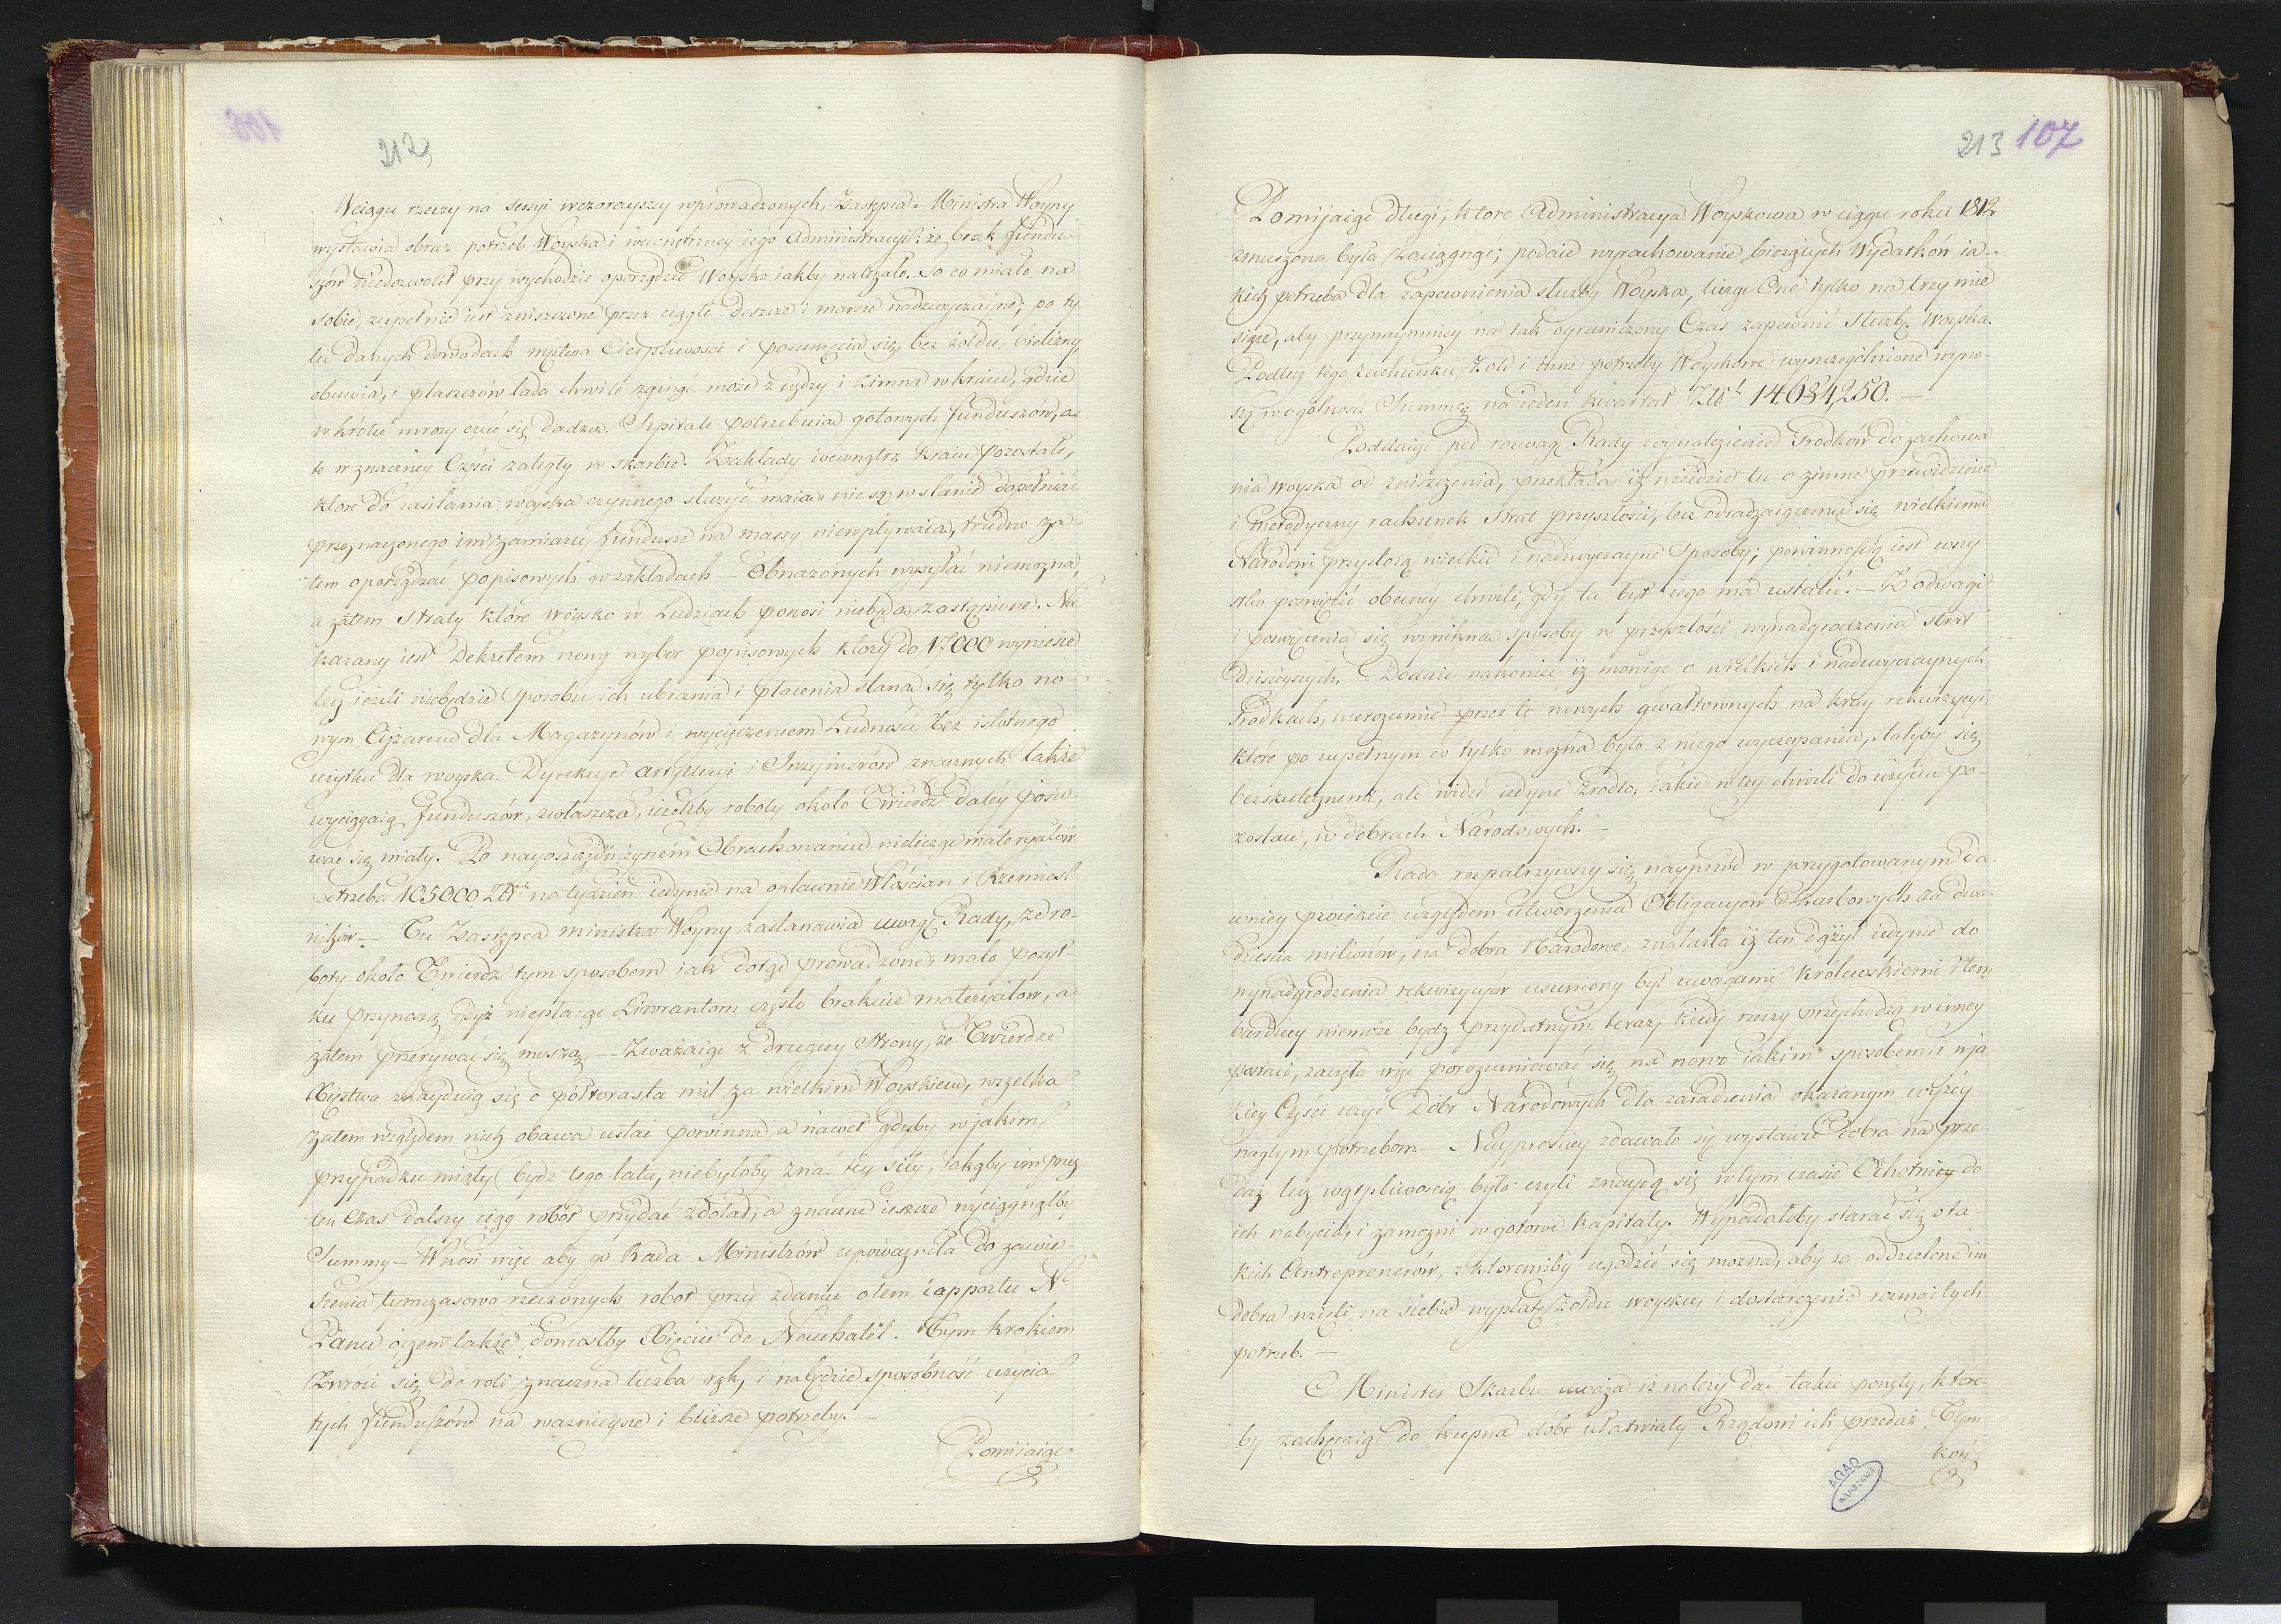 212
W ciągu rzeczy na sessyi wczorayszey wprowadzonych, Zastępca Ministra Woyny
wystawia obraz potrzeb Woyska i wewnętrzney iego Administracyi: że brak fundu-
szów niedozwolił przy wychodzie oporządzić Woysko iakby należało. To co miało na
sobie, zupełnie iest zniszczone przez ciągłe deszcze i marsze nadzwyczajne; po ty-
lu danych dowodach męztwa Cierpliwości i poświęcia się, bez żołdu, bielizny,
obuwia, i płaszczów lada chwile zginąć może z nędzy i zimna w kraiu, gdzie
wkrótce mrozy czuć się dadzą. Szpitale potrzebuią gotowych funduszów, a
te w znaczney Części zaległy w skarbie. Zakłady wewnątrz kraiu pozostałe,
które do zasilania woyska czynnego służyć maią nie są w stanie dopełniać
przeznaczonego im zamiaru, fundusze na massy niewpływaią, trudno za-
tem oporządzać popisowych w zakładach — Obnażonych wysyłać niemożna,
a zatem straty które woysko w Ludziach ponosi niebędą zastąpione. Na-
kazany iest Dekretem nowy wybor popisowych który do 17000 wyniesie
lecz ieżeli niebędzie sposobu ich ubrania i płacenia staną się tylko no-
wym Ciężarem dla Magazynów i wycięczeniem Ludności, bez istotnego
użytku dla woyska. Dyrekcye artylleryi i Inżynierów znacznych także
wyciągaią funduszów, zwłaszcza, ieżeliby roboty około Twierdz daley posu-
wać się miały. Po nayoszczędnieyszém Obrachowaniu nielicząc materyałów
potrzeba 105000 Złt na tydzień iedynie na opłacenie Włościan i Rzemieśl-
ników — Tu Zastępca Ministra Woyny zastanawia uwagę Rady, że ro-
boty około Twierdz tym sposobem iak dotąd prowadzone, mało pożyt-
ku przynoszą gdyż niepłacąc Liwrantom często brakuie materyałow, a
zatem przerywać się muszą, — Zważaiąc z drugiey Strony, że Twierdze
Xięztwa znayduią się o półtorasta mil za wielkim Woyskiem, wszelka
zatem względem nich obawa ustać powinna, a nawet gdyby w jakim
przypadku miały bydź tego latu, niebyłoby znać tey siły, iakąby im przez
ten czas dalszy ciąg robót przydać zdołał, a znaczne ieszcze wyciągnąłby
Summy — Wnosi więc aby go Rada Ministrów upoważniła do zawie-
szenia tymczasowo rzeczonych robot przy zdaniu o tem rapportu N.
Panu oczem także doniosłby Xięciu de Neuchatel. Tym krokiem
Zwróci się do roli znaczna liczba rąk, i nabędzie sposobność użycia
tych funduszów na ważnieysze i bliższe potrzeby. —
Pomijaiąc
213 107
Pomijaiąc długi, które Administracya Woyskowa w ciągu roku 1812
zmuszona była zaciągnąć; podaie wyrachowanie bieżących Wydatków ia-
kich potrzeba dla zapewnienia służby Woyska, licząc One tylko na trzy mie-
siące, aby przynaymniey na tak ograniczony Czas zapewnić służb. woyska.
Podług tego rachunku Żołd i inne potrzeby Woyskowe wyszczególnione wyno-
szą w ogólności Summę na ieden kwartał Złt 14,034,250. —
Poddaiąc pod rozwagę Rady wynalezienie środków do zachowa-
nia woyska od zniszczenia, przekłada iż nieidzie tu o zimne przewidzenie
i metodyczny rachunek strat przyszłości, lecz odradzaiącemu się wielkiemu
Narodowi przystoią wielkie i nadzwyczayne sposoby; powinnością iest wszy-
stko poświęcić obecney chwili, gdy ta byt iego ma ustalić. — Z odwagi
i poświęcenia się wynikną sposoby w przyszłości wynadgrodzenia strat
dzisieyszych. Dodaie nakoniec iż mówiąc o wielkich i nadzwyczaynych
środkach, nierozumie przez to nowych gwałtownych na kray rekwizycyi,
które po zupełnym co tylko można było z niego wyczerpaniu, stałyby się
bezskutecznemi, ale widzi iedyne źrodło, iakie w tey chwili do użycia po-
zostaie, w dobrach Narodowych. —
Rada rozpatrzywszy się nayprzód w przygotowanym da-
wniey proiekcie względem utworzenia Obligacyow Skarbowych za dwa-
dzieścia milionów, na dobra Narodowe, znalazła iż ten dążył iedynie do
wynadgrodzenia rekwizycyow usuniony był uwagami Królewskiemi i tem
bardziey niemoże bydź przydatnym teraz, kiedy rzeczy przechodzą w inney
postaci, zaczęła więc porozumiewać się na nowo iakim sposobem, i w ja-
kiey Części użyć Dóbr Narodowych dla zaradzenia okazanym wyżey
nagłym potrzebom. Nayprościey zdawało się wystawić dobra na prze-
daż lecz wątpliwością było czyli znaydą się w tym czasie Ochotnicy do
ich nabycia, i zamożni w gotowe kapitały. Wypadałoby starać się o ta-
kich Antreprenerów, z któremiby ugodzić się można, aby za oddzielone im
dobra wzięli na siebie wypłatę żołdu woysku, i dostarczenie rozmaitych
potrzeb. —
Minister Skarbu uważa iż należy dać takie ponęty, które-
by zachęcaiąc do kupna dóbr ułatwiały Rządowi ich przedaż. Tym
koń-
AGAD
WARSZAWA